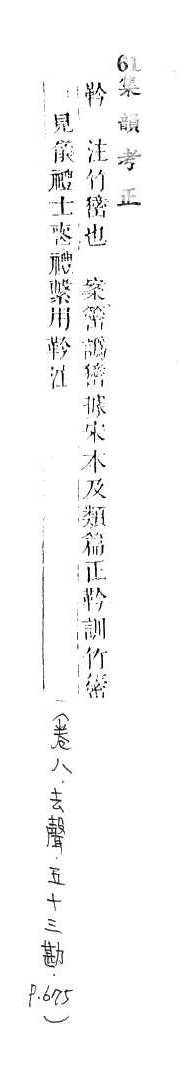 61集韻考正
靲 注竹簚也 案簚譌簚據宋本及類篇正靲訓竹簚
見儀禮士喪禮繫用靲注
(卷八.去聲.五十三勘.
P.675)